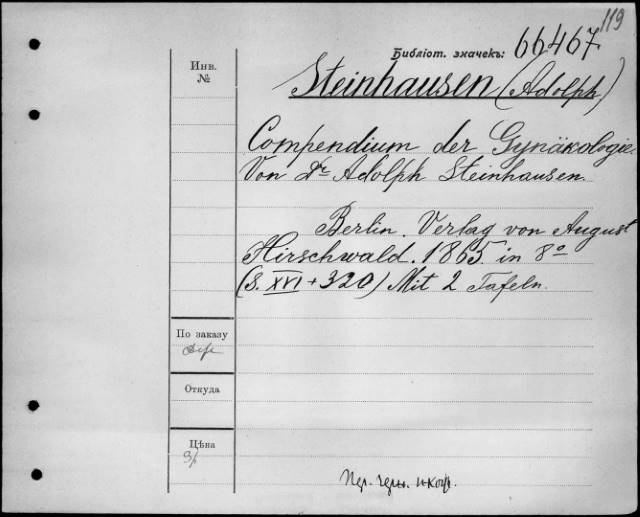 119
Библіот. значекъ: 66467
Инв.
№
Steinhausen (Adolph)
Compendium der Gynäkologie.
Von Dr Adolph Steinhausen.
Berlin. Verlag von August
Hirschwald. 1865 in 8o
(S. XVI + 320) Mit 2 Tafeln.
По заказу
Откуда
Цѣна